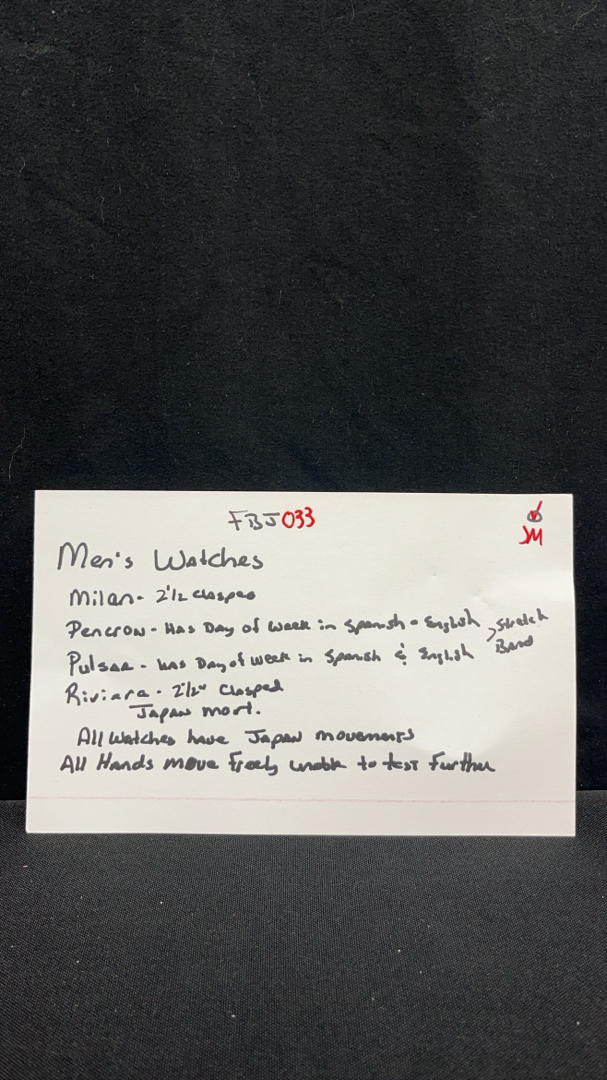 FBJ033
JM
Men's Watches
Milan - 2 1/2 clasped
Pencron - Has Day of week in Spanish - English > Stretch Band
Pulsar - has Day of week in Spanish & English
Riviara - 2 1/2" Clasped
Japan mort.
All Watches have Japan movements
All Hands move Freely unable to test Further